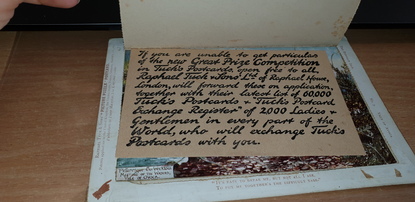 If you are unable to get particulars
of the new Great Prize Competition
in Tuck's Postcards, open free to all,
Raphael Tuck & Sons Ltd of Raphael House,
London, will forward them on application,
together with their latest list of 60,000
Tuck's Postcards & "Tuck's Postcard
Exchange Register" of 2,000 Ladies &
Gentlemen in every part of the
World, who will exchange Tuck's
Postcards with you.